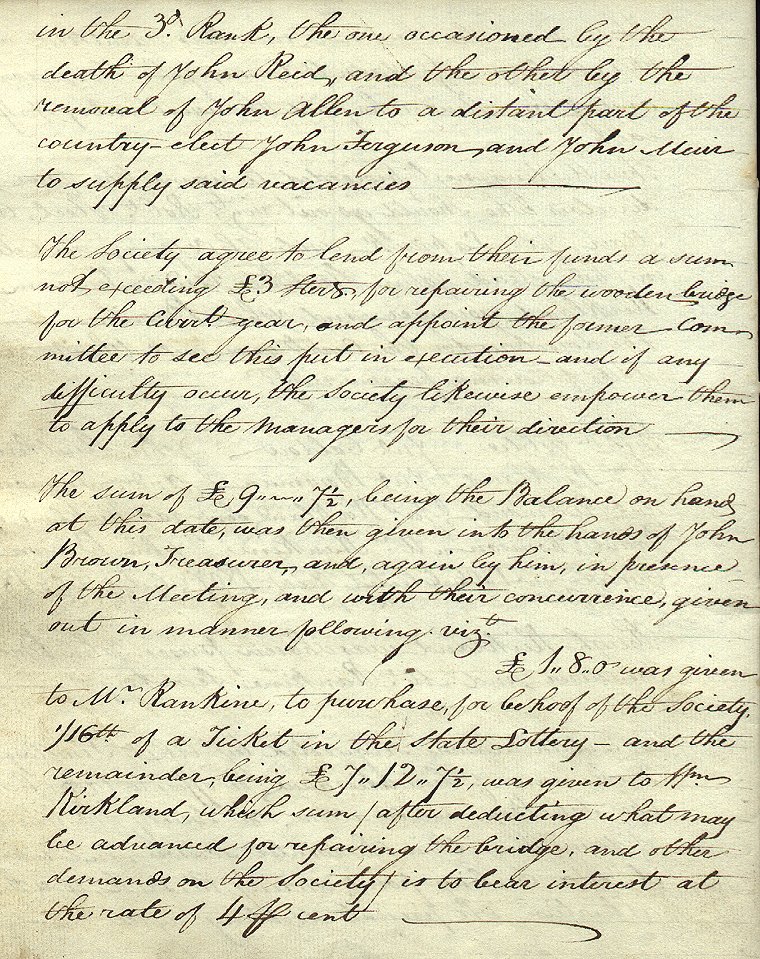 in the 3d. Rank, the one occasioned by the
death of John Reid, and the other by the
removal of John Allen to a distant part of the
country - elect John Ferguson, and John Muir
to supply said vacancies
The Society agree to lend from their funds a sum
not exceeding £3 Sterg., for repairing the wooden bridge
for the Currt. year, and appoint the former Com-
mittee to see this put in execution - and if any
difficulty occur, the Society likewise empower them
to apply to the Managers for their direction
The sum of £9,,~,,7½, being the Balance on hand
at this date, was then given into the hands of John
Brown, Treasurer, and, again by him, in presence
of the Meeting, and with their concurrence, given
out in manner following vizt.
£1,,8,,0 was given
to Mr. Rankine, to purchase, for behoof of the Society,
1/16th of a Ticket in the State Lottery - and the
remainder, being £7,,12,,7½, was given to Wm
Kirkland, which sum / after deducting what may
be advanced for repairing the bridge, and other
demands on the Society / is to bear interest at
the rate of 4 ⅌ cent